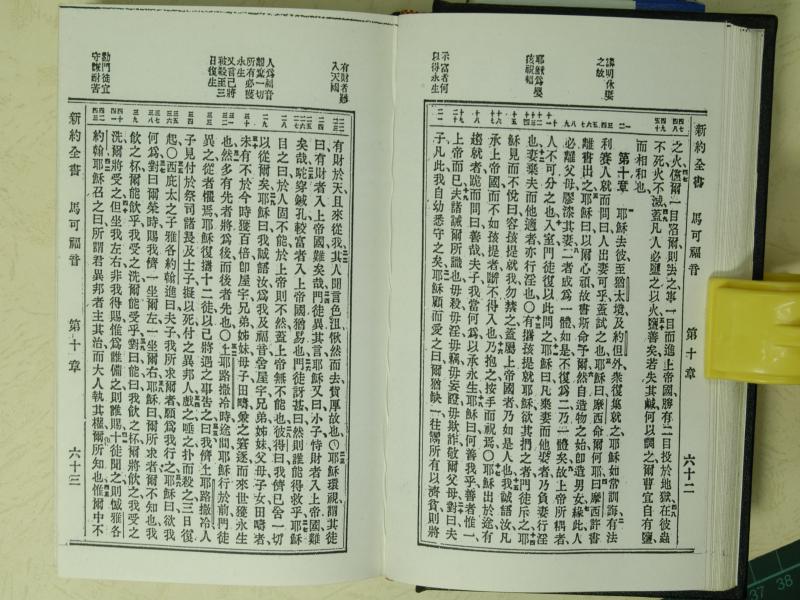 新約全書 馬可福音 第十章 六十二
論明休妻之故
耶穌爲嬰孩祝福
示富者何以得永生
之火儻爾一目陷爾則去之寧一目而進上帝國勝有二目投於地獄在彼蟲
不死火不滅蓋凡人必鹽之以火鹽善矣若失其鹹何以調之爾曹宜自有鹽
而相和也
第十章 耶穌去彼至猶太境及約但外衆復集就之耶穌如常訓誨有法
利賽人就而問曰人出妻可乎蓋試之也耶穌曰摩西命爾何耶曰摩西許書
離書出之耶穌曰以爾心頑故書斯命予爾然自造物之始卽造男女緣此人
必離父母膠漆其妻二者成爲一體如是不復爲二乃一體矣故上帝所耦者
人不可分之也入室門徒復以此問之耶穌曰凡棄妻而他娶者乃負妻行淫
也妻棄夫而他適者亦行淫也〇有攜孩提就耶穌欲其捫之者門徒斥之耶
穌見而不悅曰容孩提就我勿禁之蓋屬上帝國者乃如是人也我誠語汝凡
承上帝國而不如孩提者斷不得入也乃抱之按手而祝焉〇耶穌出於途有
趨就者跪而問曰善哉夫子我當何爲以承永生耶穌曰何善我乎善者惟一
上帝而已夫諸誡爾所識也毋殺毋淫毋竊毋妄證毋欺詐敬爾父母對曰夫
子凡此我自幼悉守之矣耶穌顧而愛之曰爾猶缺一往鬻所有以濟貧則將
有財者難入天國
人爲福音離棄一切所有必獲永生
又言己將被殺至三日復生
勸門徒宜守謙耐苦
有財於天且來從我其人聞言色沮愀然而去貲厚故也〇耶穌環視謂其徒
曰有財者入上帝國難矣哉門徒異其言耶穌又曰小子恃財者入上帝國難
矣哉駝穿鍼孔較富者入上帝國猶易也門徒訝甚曰然則誰能得救乎耶穌
目之曰於人固不能於上帝則不然蓋上帝無不能也彼得曰我儕已舍一切
以從爾矣耶穌曰我誠語汝爲我及福音舍屋宇兄弟姊妹父母子女田疇者
未有不於今時獲百倍卽屋宇兄弟姊妹母子田疇兼之窘逐而來世獲永生
也然多有先者將爲後而後者先也〇上耶路撒冷時途間耶穌行於前門徒
異之從者懼焉耶穌復攜十二徒以己將遇之事告之曰我儕上耶路撒冷人
子見付於祭司諸長及士子擬以死付之異邦人戲之唾之扑而殺之三日復
起〇西庇太之子雅各約翰進曰夫子我所求爾者願爲我行之耶穌曰欲我
何爲對曰爾榮時賜我儕一坐爾左一坐爾右耶穌曰爾所求者爾不知也我
飲之杯爾能飲乎我受之洗爾能受乎對曰能曰我飲之杯爾將飲之我受之
洗爾將受之但坐我左右非我得賜惟爲誰備之則賜十徒聞之則憾雅各
約翰耶穌召之曰所謂君異邦者主其治而大人執其權爾所知也惟爾中不
新約全書 馬可福音 第十章 六十三
37
38